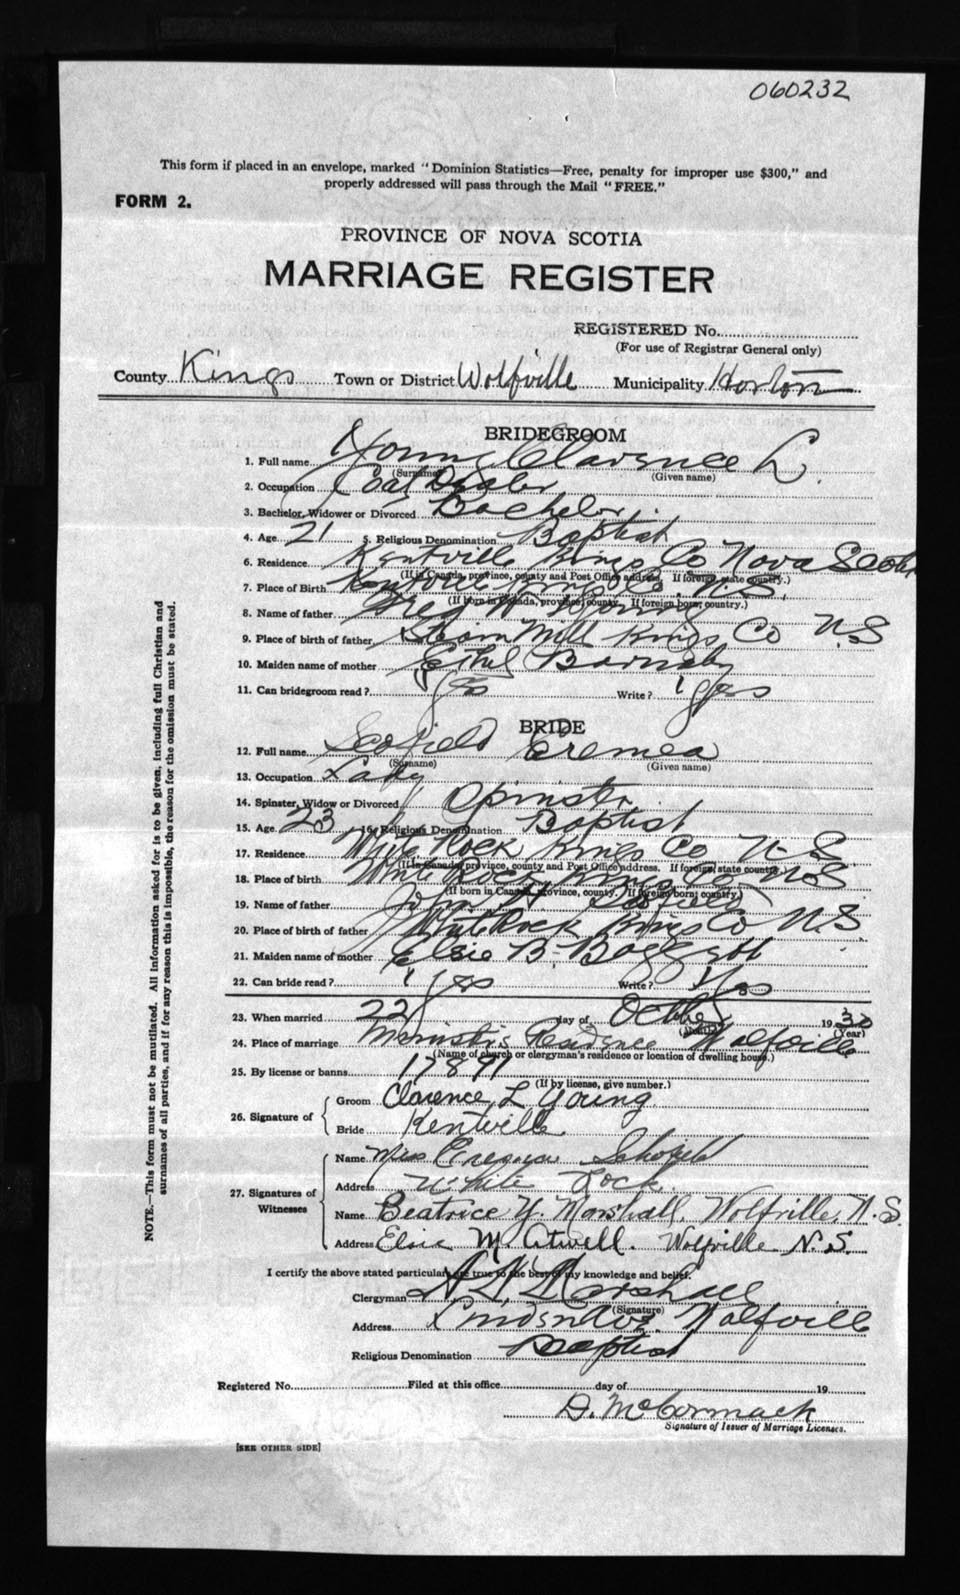 060232
This form if placed in an envelope, marked "Dominion Statistics—Free, penalty for improper use $300," and
properly addressed will pass through the Mail "FREE."
FORM 2.
PROVINCE OF NOVA SCOTIA
MARRIAGE REGISTER
REGISTERED No.
(For use of Registrar General only)
County Kings Town or District Wolfville Municipality Horton
BRIDEGROOM
1. Full name Young Clarence L.
(Surname) (Given name)
2. Occupation Coal Dealer
3. Bachelor, Widower or Divorced Bachelor
4. Age 21 5. Religious Denomination Baptist
6. Residence Kentville Kings Co Nova Scotia
(If in Canada, province, county and Post Office address. If foreign, state country.)
7. Place of Birth Kentville Kings Co. N.S.
(If born in Canada, province, county. If foreign born, country.)
8. Name of father Fred W. Young
9. Place of birth of father Steam Mill Kings Co N.S
10. Maiden name of mother Ethel Barnaby
11. Can bridegroom read? Yes Write? Yes
BRIDE
12. Full name Scofield Eremea
(Surname) (Given name)
13. Occupation Lady
14. Spinster, Widow or Divorced Spinster
15. Age 23 16. Religious Denomination Baptist
17. Residence White Rock Kings Co N-S
(If in Canada, province, county and Post Office address. If foreign, state country.)
18. Place of birth White Rock Kings Co N.S
(If born in Canada, province, county. If foreign born country.)
19. Name of father John Scofield
20. Place of birth of father White Rock Kings Co N.S.
21. Maiden name of mother Elsie B.
22. Can bride read? Yes Write? Yes
23. When married 22 day of October 1930
(Month) (Year)
24. Place of marriage Minister's Residence Wolfville
(Name of church or clergyman's residence or location of dwelling house.)
25. By license or banns 17891
(If by license, give number.)
26. Signature of Groom Clarence L Young
Bride Kentville
27. Signatures of Witnesses Name Miss Schofield
Address White Rock.
Name Beatrice Y. Marshall, Wolfville, N.S.
Address Elsie M. Atwell. Wolfville N.S.
I certify the above stated particulars are true to the best of my knowledge and belief.
Clergyman Marshall
(Signature)
Address Linden Ave. Wolfville
Religious Denomination Baptist
Registered No. Filed at this office day of 19
D. McCormack
Signature of Issuer of Marriage Licenses.
[SEE OTHER SIDE]
NOTE.—This form must not be mutilated. All information asked for is to be given, including full Christian and
surnames of all parties, and if for any reason this is impossible, the reason for the omission must be stated.